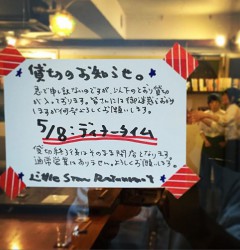 貸切のお知らせ。
急で申し訳ないのですが、以下のとおり貸切
が入っております。皆さんには御迷惑をおかけ
しますが何卒よろしくお願いします。
5/8:ディナータイム
貸切終了後はそのまま閉店となります。
通常営業はありません。よろしくお願いします。
Little Star Restaurant